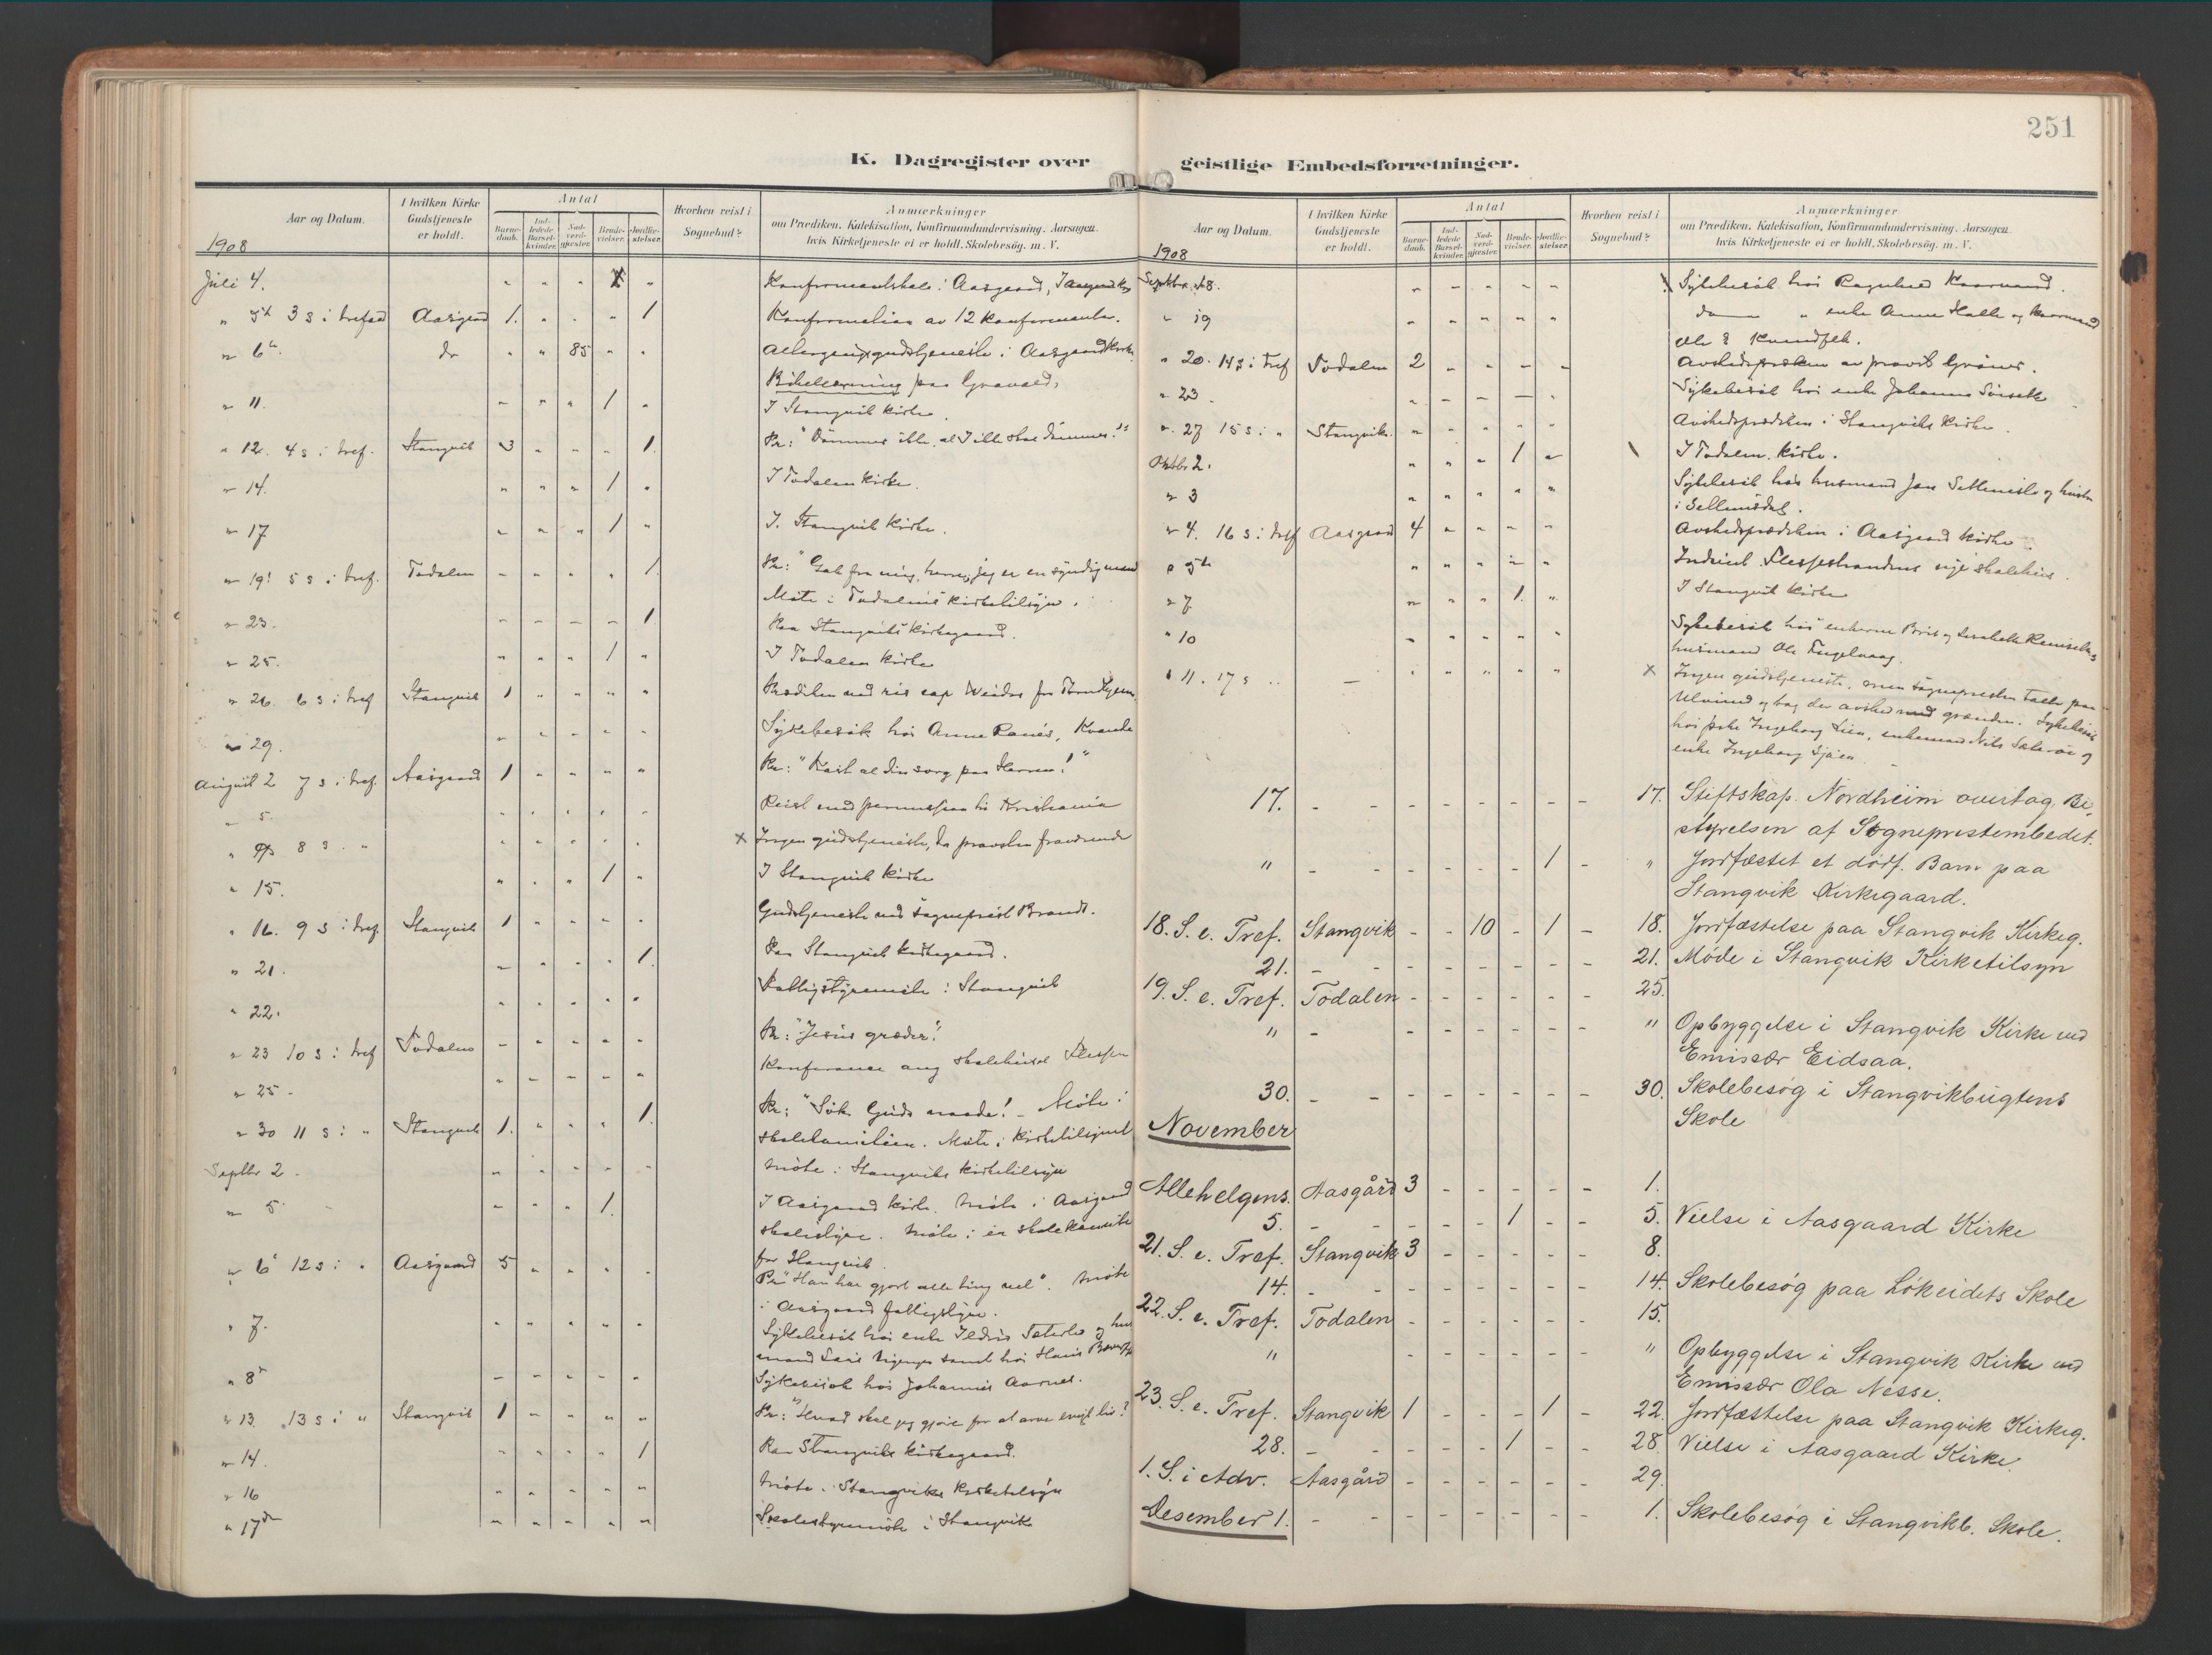 251
K. Dagregister over
geistlige Embedsforretninger.
Aar og Datum.
I hvilken Kirke Gudstjeneste er holdt.
Antal
Barne-daab.
Ind-ledede Barsel-kvinder.
Nad-verd-gjester.
Brude-vielser.
Jordfæ-stelser.
Hvorhen reist i Sognebud?
Anmærkninger
om Prædiken, Katekisation, Konfirmandundervisning. Aarsagen,
hvis Kirketjeneste ei er holdt. Skolebesøg. m. V.
1908
Juli 4. " " " "
Konfirmantskole i Aasgaard,
" 5 3 s i trefod Aasgaard 1. " " " 1
Konfirmation av 12 konfirmanter.
" 6 do " " 85 " "
Altergangsgudstjeneste i Aasgaard kirke.
" 11. " " " 1 "
I Stangvik kirke.
" 12. 4 s i tref. Stangvik 3 " " " 1.
Pr: "Dømmer ikke, at I ikke skal dømmes!"
" 14. " " " 1 "
I Todalen kirke.
" 17 " " " 1 "
I Stangvik kirke.
" 19 5 s i tref. Todalen " " " " 1.
Pr: "Gak fra mig, herre, jeg er en syndig mand
Møte i Todalens kirketilsyn.
" 23. 1
Paa Stangviks kirkegaard.
" 25. " " " 1 "
I Todalen kirke
" 26. 6 s i tref Stangvik 1 " " " "
" 29. " " " " "
Sykebesøk hos Anne Ranes, Kvande
August 2 7 s i tref. Aasgaard 1 " " " "
Pr: "Kast al din sorg paa Herren!"
" 5.
Reist med permission til Kristiania
" 9 8 s. "
x Ingen gudstjeneste, da provsten fraværende
" 15. " " " 1 "
I Stangvik kirke
" 16. 9 s i tref Stangvik 1 " " " "
Gudstjeneste ved sogneprest Brandt.
" 21. " " " " 1.
Paa Stangvik kirkegaard.
" 22.
Fattigstyremøte i Stangvik
" 23 10 s i tref Todalen " " " " "
Pr: "Jesus græder."
" 25 -
Konferance ang skolehuset
" 30 11 s i " Stangvik 1. " " " 1.
Pr: "Søk Guds naade! - Møte i
Septbr 2.
Møte i Stangviks kirketilsyn
" 5. " " " 1.
I Aasgaard kirke. Møte i Aasgaard
skolestyre. Møte i
for Stangvik.
" 6 12 s i " Aasgaard 5 " " " "
Pr "Han har gjort alle ting vel". Møte
i Aasgaard fattigstyre.
" 7.
Sykebesøk hos enke
" 8
Sykebesøk hos Johannes Aarnes.
" 13. 13 s i " Stangvik 1 " " " "
Pr: "Hvad skal jeg gjøre for at arve evigt liv?
" 14. " " " " 1
Paa Stangviks kirkegaard.
" 16
Møte i Stangviks kirketilsyn
" 17
Skolestyremøte i Stangvik
Aar og Datum.
I hvilken Kirke Gudstjeneste er holdt.
Antal
Barne-daab.
Ind-ledede Barsel-kvinder.
Nad-verd-gjester.
Brude-vielser.
Jordfæ-stelser.
Hvorhen reist i Sognebud?
Anmærkninger
om Prædiken, Katekisation, Konfirmandundervisning. Aarsagen,
hvis Kirketjeneste ei er holdt. Skolebesøg. m. V.
1908
Septbr. 18.
Sykebesøk hos
" 19
" 20. 14 s i tref Todalen 2 " " " "
Avskedspræken av provst Grøner.
" 23.
Sykebesøk hos enke Johanne
" 27 15 s i " Stangvik " " " " "
Avskedsprædiken i Stangviks kirke.
Oktbr 2. " " " 1 "
I Todalen kirke.
" 3
Sykebesøk hos husmand
" 4. 16 s i tref Aasgaard 4 " " " "
Avskedsprædiken i Aasgaard kirke.
" 5
nye skolehus.
" 7. " " " 1. "
I Stangvik kirke
" 10
Sykebesøk hos enkerne
husmand Ole
" 11. 17 s "
x Ingen gudstjeneste, men sognepresten talte paa
og tog der avsked med grænden. Sykebesøk
enke Ingeborg
17. 17. Stiftskap. Nordheim overtog Be-
styrelsen af Sogneprestembedet.
" 1 " Jordfæstet et dødf. Barn paa
Stangvik Kirkegaard.
18. S. e. Tref. Stangvik - - 10 - 1 - 18. Jordfæstelse paa Stangvik Kirkeg.
21. 21. Møde i Stangvik Kirketilsyn
19. S. e. Tref. Todalen 25.
" " Opbyggelse i Stangvik Kirke ved
Emissær Eidsaa.
30. 30. Skolebesøg i Stangvikbugtens
Skole
November
Allehelgens. Aasgård 3 - - - - - 1.
5. 1 5. Vielse i Aasgaard Kirke
21. S. e. Tref. Stangvik 3 - - - - - 8.
14. 14. Skolebesøg paa Løkeidets Skole
22. S. e. Tref. Todalen 15.
" " Opbyggelse i Stangvik Kirke ved
Emissær Ola Nesse.
23. S. e. Tref. Stangvik 1 - - - 1 - 22. Jordfæstelse paa Stangvik Kirkeg.
28. 1 28. Vielse i Aasgaard Kirke.
1. S. i Adv. Aasgård 29.
Desember 1. 1. Skolebesøg i Stangvikb. Skole.